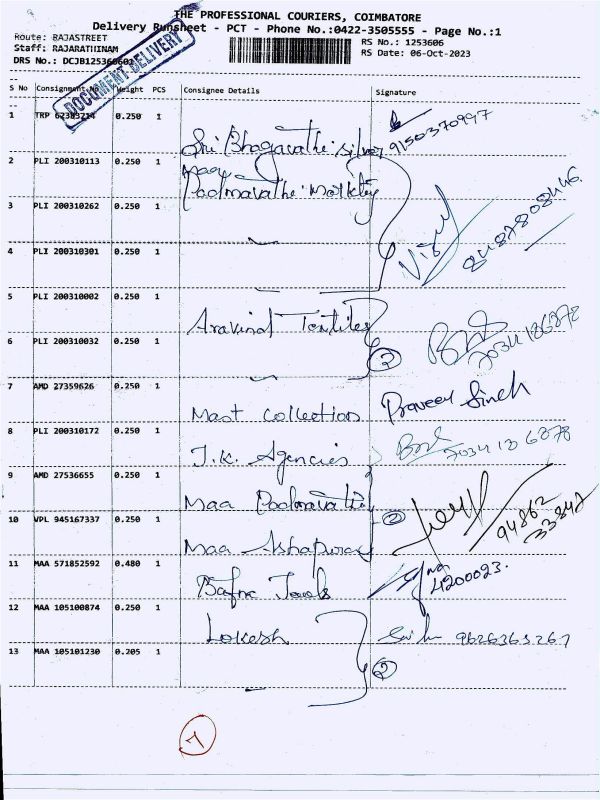 THE PROFESSIONAL COURIERS, COIMBATORE
Delivery Runsheet - PCT - Phone No.:0422-3505555 - Page No.:1
Route: RAJASTREET
Staff: RAJARATHINAM
DRS No.: DCJB125360601
RS No.: 1253606
RS Date: 06-Oct-2023
DOCUMENT DELIVERY
S No Consignment No Weight PCS Consignee Details Signature
1 TRP 62383214 0.250 1 Sri Bhagavathi silver 9150370997
2 PLI 200310113 0.250 1 Maa Padmavathi
3 PLI 200310262 0.250 1
4 PLI 200310301 0.250 1
5 PLI 200310002 0.250 1 Aravind
6 PLI 200310032 0.250 1 2
7 AMD 27359626 0.250 1 Mast Collection Praveen Singh
8 PLI 200310172 0.250 1 J.K. Agencies
9 AMD 27536655 0.250 1 Maa Padmavathi
10 VPL 945167337 0.250 1 Maa Ashapuray 2
11 MAA 571852592 0.480 1 Bafna 4200023.
12 MAA 105100874 0.250 1 Lokesh 9626363267
13 MAA 105101230 0.205 1 2
7